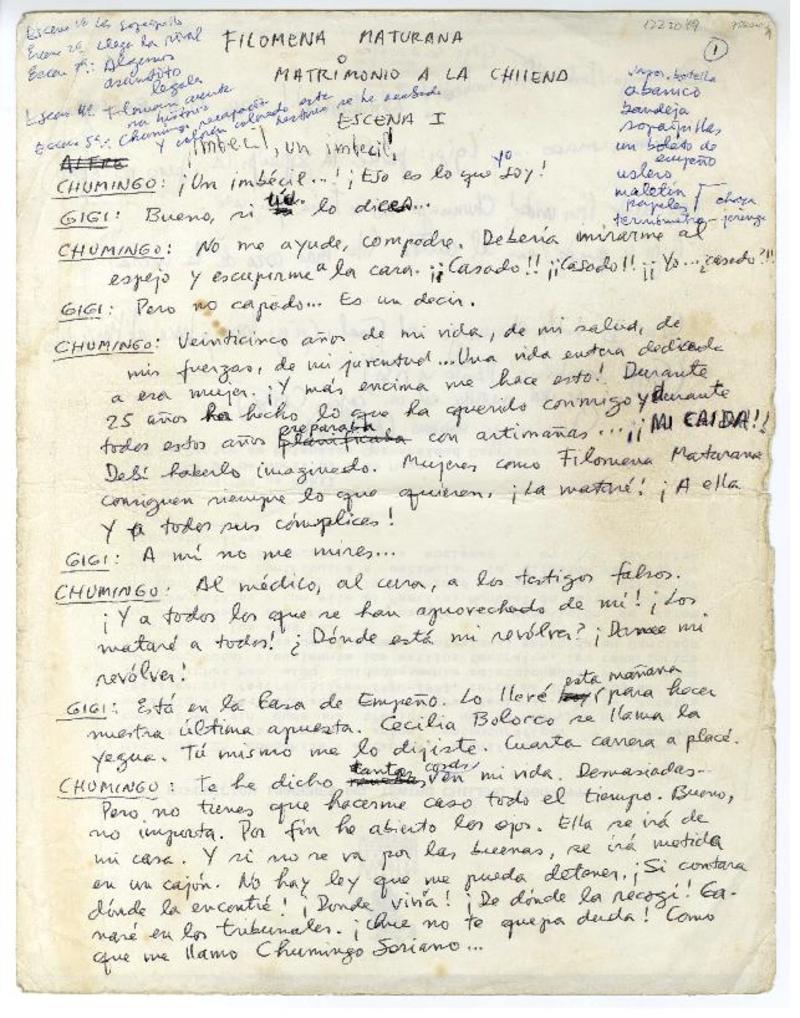 Escena 1ª Las Sopaipillas
Escena 2ª: Llega la rival
Escena 3ª: Algunos
asuntito
legales
Escena 4ª: Filomena cuenta
su historia
Escena 5ª: Chumingo recapacita
y colorín colorado esta
historia se ha acabado
FILOMENA MATURANA
O
MATRIMONIO A LA CHILENO
ESCENA I
1
botella
abanico
bandeja
sopaipillas
un boleto de
empeño
uslero
maletín
papeles
termómetro - jeringa
ALFRE
¡Imbécil, un imbécil,
CHUMINGO: ¡Un imbécil...! ¡Eso es lo que yo soy!
GIGI: Bueno, si tú lo dices...
CHUMINGO: No me ayude, compadre. Debería mirarme al
espejo y escupirme a la cara. ¡¡Casado!! ¡¡Casado!! ¡¡Yo... ¿casado?!!
GIGI: Pero no capado... Es un decir.
CHUMINGO: Veinticinco años de mi vida, de mi salud, de
mis fuerzas, de mi juventud... Una vida entera dedicada
a esa mujer. ¡Y más encima me hace esto! Durante
25 años ha hecho lo que ha querido conmigo y durante
todos estos años planificaba preparaba con artimañas... ¡¡MI CAIDA!!
Debí haberlo imaginado. Mujeres como Filomena Maturana
consiguen siempre lo que quieren. ¡La mataré! ¡A ella
y a todos sus cómplices!
GIGI: A mí no me mires...
CHUMINGO: Al médico, al cura, a los testigos falsos.
¡Y a todos los que se han aprovechado de mí! ¡Los
mataré a todos! ¿Dónde está mi revólver? ¡Dame mi
revólver!
GIGI: Está en la Casa de Empeño. Lo llevé esta mañana para hacer
nuestra última apuesta. Cecilia Bolocco se llama la
yegua. Tú mismo me lo dijiste. Cuarta carrera a placé.
CHUMINGO: Te he dicho tantas cosas en mi vida. Demasiadas...
Pero no tienes que hacerme caso todo el tiempo. Bueno,
no importa. Por fin he abierto los ojos. Ella se irá de
mi casa. Y si no se va por las buenas, se irá metida
en un cajón. No hay ley que me pueda detener. ¡Si contara
dónde la encontré! ¡Donde vivía! ¡De dónde la recogí! Ga-
naré en los tribunales. ¡Que no te quepa duda! Como
que me llamo Chumingo Soriano...